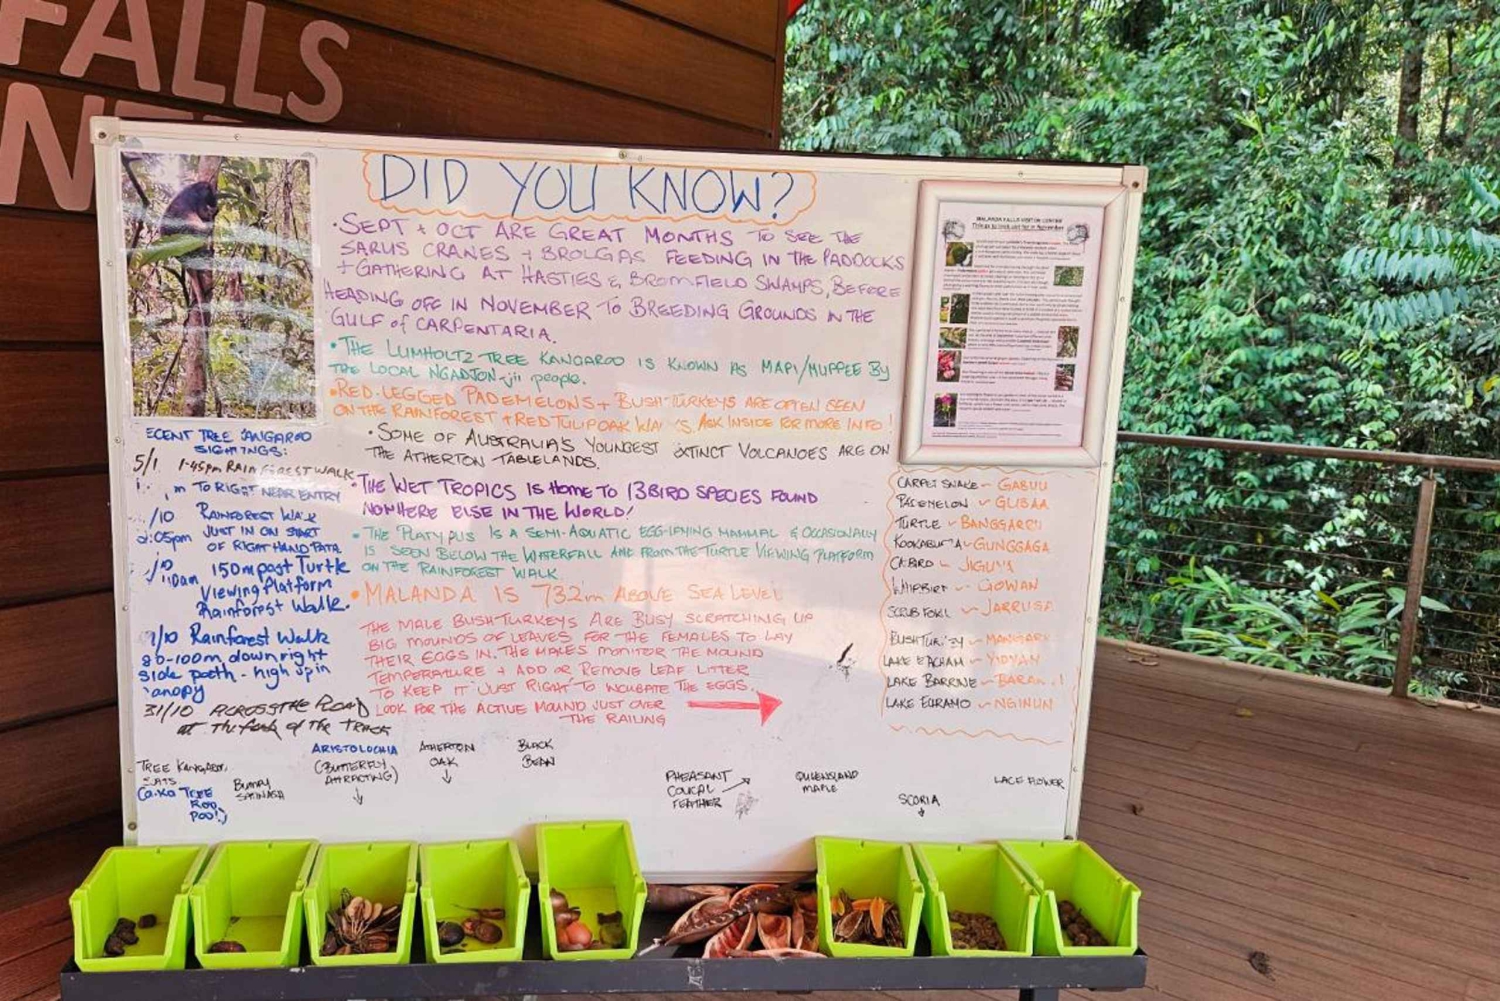 FALLS
DID YOU KNOW?
• SEPT + OCT ARE GREAT MONTHS TO SEE THE
SARUS CRANES + BROLGAS FEEDING IN THE PADDOCKS
+ GATHERING AT HASTIES & BROMFIELD SWAMPS, BEFORE
HEADING OFF IN NOVEMBER TO BREEDING GROUNDS IN THE
GULF of CARPENTARIA.
• THE LUMHOLTZ TREE KANGAROO IS KNOWN AS MAPI/MUPPEE BY
THE LOCAL NGADJON-jii people.
• RED-LEGGED PADEMELONS + BUSH TURKEYS ARE OFTEN SEEN
ON THE RAINFOREST + RED TULIP OAK WA 'S, ASK INSIDE FOR MORE INFO!
• SOME OF AUSTRALIA'S YOUNGEST EXTINCT VOLCANOES ARE ON
THE ATHERTON TABLELANDS.
• THE WET TROPICS IS HOME TO 13 BIRD SPECIES FOUND
NOWHERE ELSE IN THE WORLD!
• THE PLATYPUS IS A SEMI-AQUATIC EGG-LAYING MAMMAL & OCCASIONALLY
IS SEEN BELOW THE WATERFALL AND FROM THE TURTLE VIEWING PLATFORM
ON THE RAINFOREST WALK.
• MALANDA IS 732m ABOVE SEA LEVEL
THE MALE BUSH TURKEYS ARE BUSY SCRATCHING UP
BIG MOUNDS OF LEAVES FOR THE FEMALES TO LAY
THEIR EGGS IN. THE MALES MONITOR THE MOUND
TEMPERATURE + ADD OR REMOVE LEAF LITTER
TO KEEP IT 'JUST RIGHT' TO INCUBATE THE EGGS.
LOOK FOR THE ACTIVE MOUND JUST OVER
THE RAILING
ECENT TREE KANGAROO
SIGHTINGS:
5/1 1-45pm RAINFOREST WALK
m TO RIGHT NEAR ENTRY
/10 RAINFOREST WALK
2:05pm JUST IN ON START
OF RIGHT HAND PATH
/10 150m past Turtle
10am Viewing Platform
Rainforest Walk.
9/10 Rainforest Walk
80-100m down right
side path - high up in
canopy
31/10 ACROSS THE ROAD
at the fork of the TRACK
MALANDA FALLS VISITOR CENTRE
Things to look out for in November
CARPET SNAKE ~ GABUU
PADEMELON ~ GUBAA
TURTLE ~ BANGGARRU
KOOKABURRA ~ GUNGGAGA
CATBIRD ~
WHIPBIRD ~ GOWAN
SCRUB FOWL ~ JARRUGA
BUSH TURKEY ~
LAKE EACHAM ~ YIDYAM
LAKE BARRINE ~
LAKE EURAMO ~ NGIMUN
TREE KANGAROO
Ca-Ka TREE
ROO
POO!)
BUMPY
SATINASH
ARISTOLOCHIA
(BUTTERFLY
ATTRACTING)
ATHERTON
OAK
BLACK
BEAN
PHEASANT
COUCAL
FEATHER
QUEENSLAND
MAPLE
SCORIA
LACE FLOWER